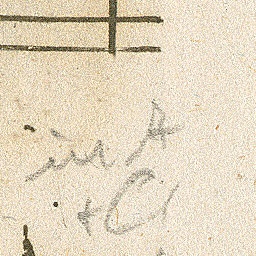 in A
+ C